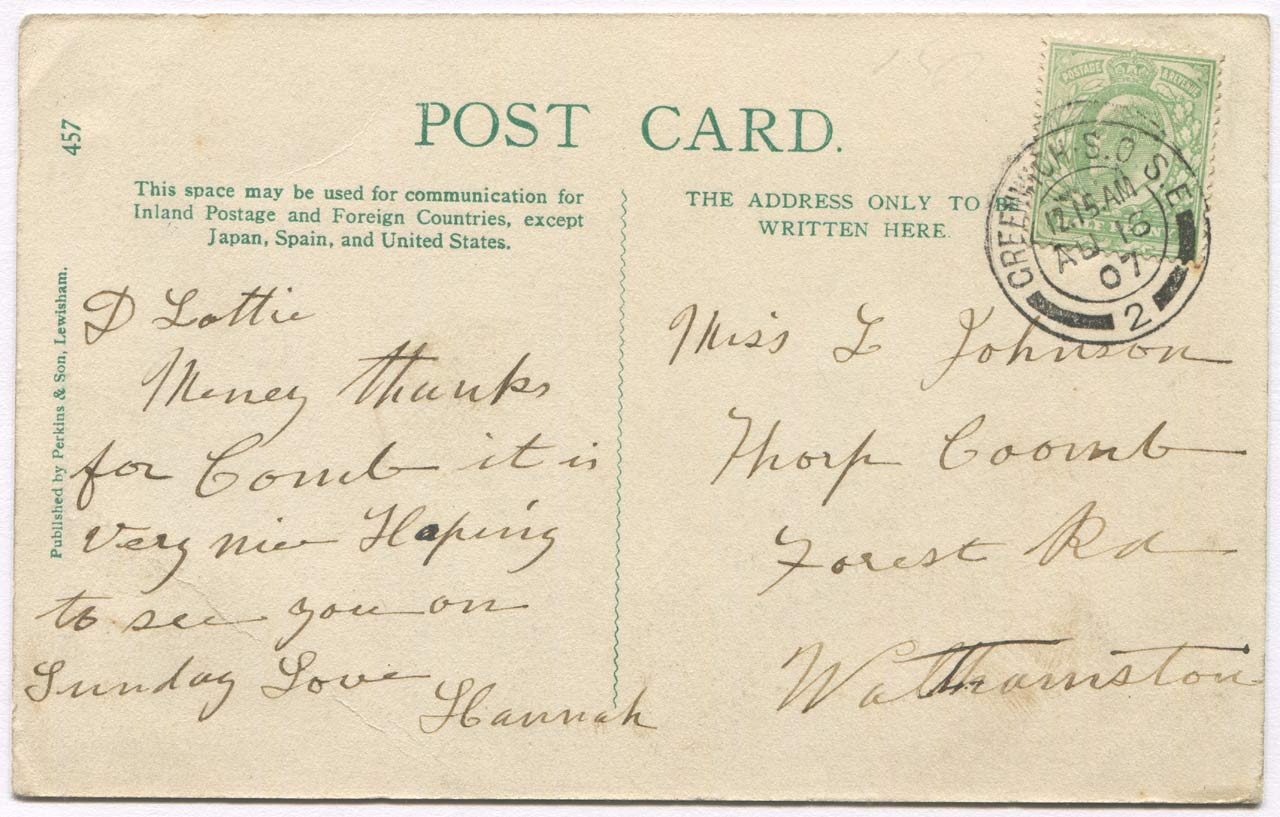 150
POSTAGE & REVENUE
POST CARD.
457
GREENWICH S.O S.E
12.15.AM
AU 16
07
2
This space may be used for communication for
Inland Postage and Foreign Countries, except
Japan, Spain, and United States.
THE ADDRESS ONLY TO
WRITTEN HERE.
Published by Perkins & Son, Lewisham.
D Lottie
Meney thanks
for Comb it is
very nice Hoping
to see you on
Sunday Love
Hannah
Miss L Johnson
Thorp Coomb
Forest Rd
Walthamston